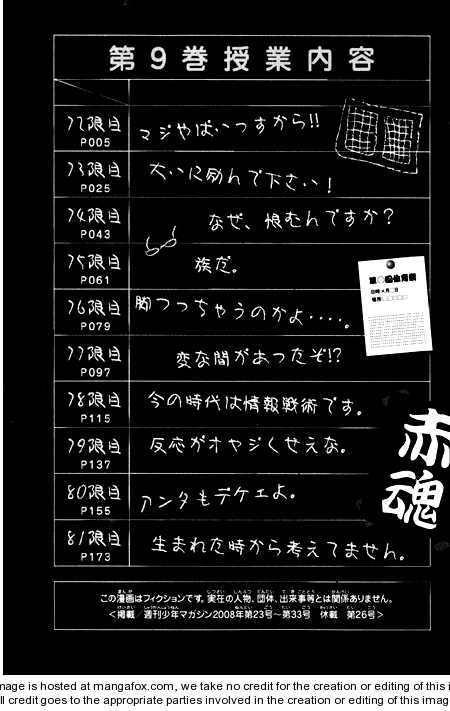 第9巻授業内容
72限目 P005 マジやばいっすから!!
73限目 P025 大いに励んで下さい!
74限目 P043 なぜ、恨むんですか?
75限目 P061 族だ。
76限目 P079 脚つっちゃうのかよ‥‥。
77限目 P097 変な間があったぞ!?
78限目 P115 今の時代は情報戦術です。
79限目 P137 反応がオヤジくせえな。
80限目 P155 アンタもデケェよ。
81限目 P173 生まれた時から考えてません。
赤魂
この漫画はフィクションです。実在の人物、団体、出来事等とは関係ありません。
<掲載 週刊少年マガジン2008年第23号〜第33号 休載 第26号>
mage is hosted at mangafox.com, we take no credit for the creation or editing of this i
ll credit goes to the appropriate parties involved in the creation or editing of this imag